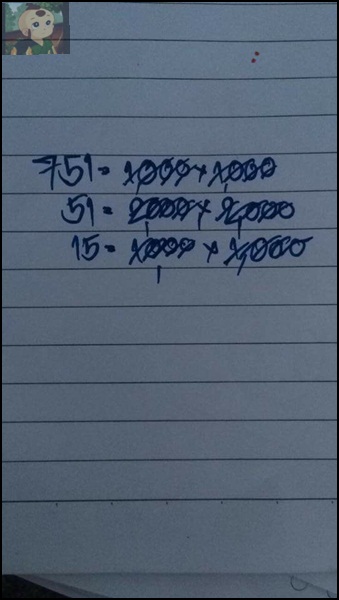 751= 1000 x 1000
51= 2000 x 2,000
15= 1000 x 1,000